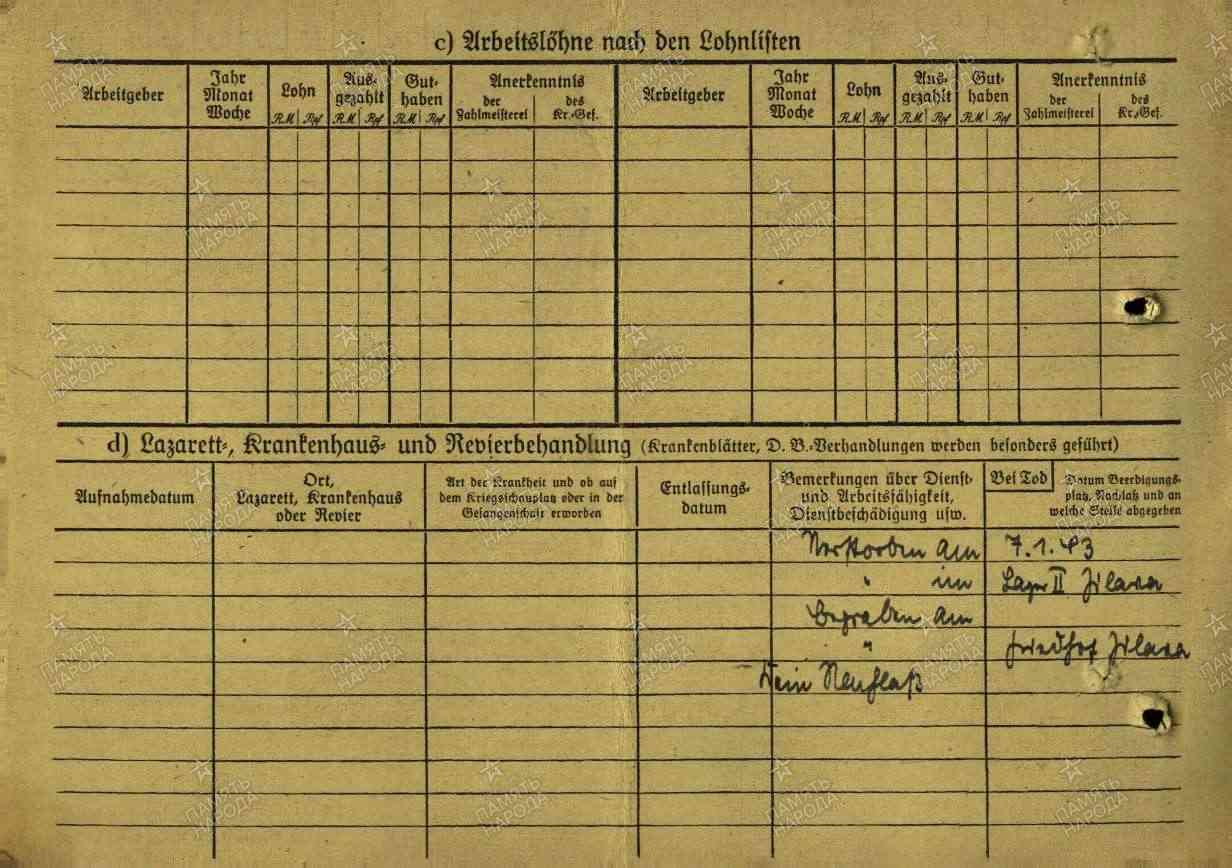 c) Arbeitslöhne nach den Lohnlisten
Arbeitgeber
Jahr
Monat
Woche
Lohn
RM Rpf
Aus-
gezahlt
RM Rpf
Gut-
haben
RM Rpf
Anerkenntnis
der
Zahlmeisterei
des
Kr.-Gef.
Arbeitgeber
Jahr
Monat
Woche
Lohn
RM Rpf
Aus-
gezahlt
RM Rpf
Gut-
haben
RM Rpf
Anerkenntnis
der
Zahlmeisterei
des
Kr.-Gef.
d) Lazarett-, Krankenhaus- und Revierbehandlung (Krankenblätter, D. B.-Verhandlungen werden besonders geführt)
Aufnahmedatum
Ort,
Lazarett, Krankenhaus
oder Revier
Art der Krankheit und ob auf
dem Kriegsschauplatz oder in der
Gefangenschaft erworben
Entlassungs-
datum
Bemerkungen über Dienst-
und Arbeitsfähigkeit,
Dienstbeschädigung usw.
Bei Tod
Datum Beerdigungs-
platz, Nachlaß und an
welche Stelle abgegeben
Verstorben am 7.1.43
" im Lager II Jilava
begraben am
" Friedhof Jilava
Kein Nachlaß
ПАМЯТЬ
НАРОДА